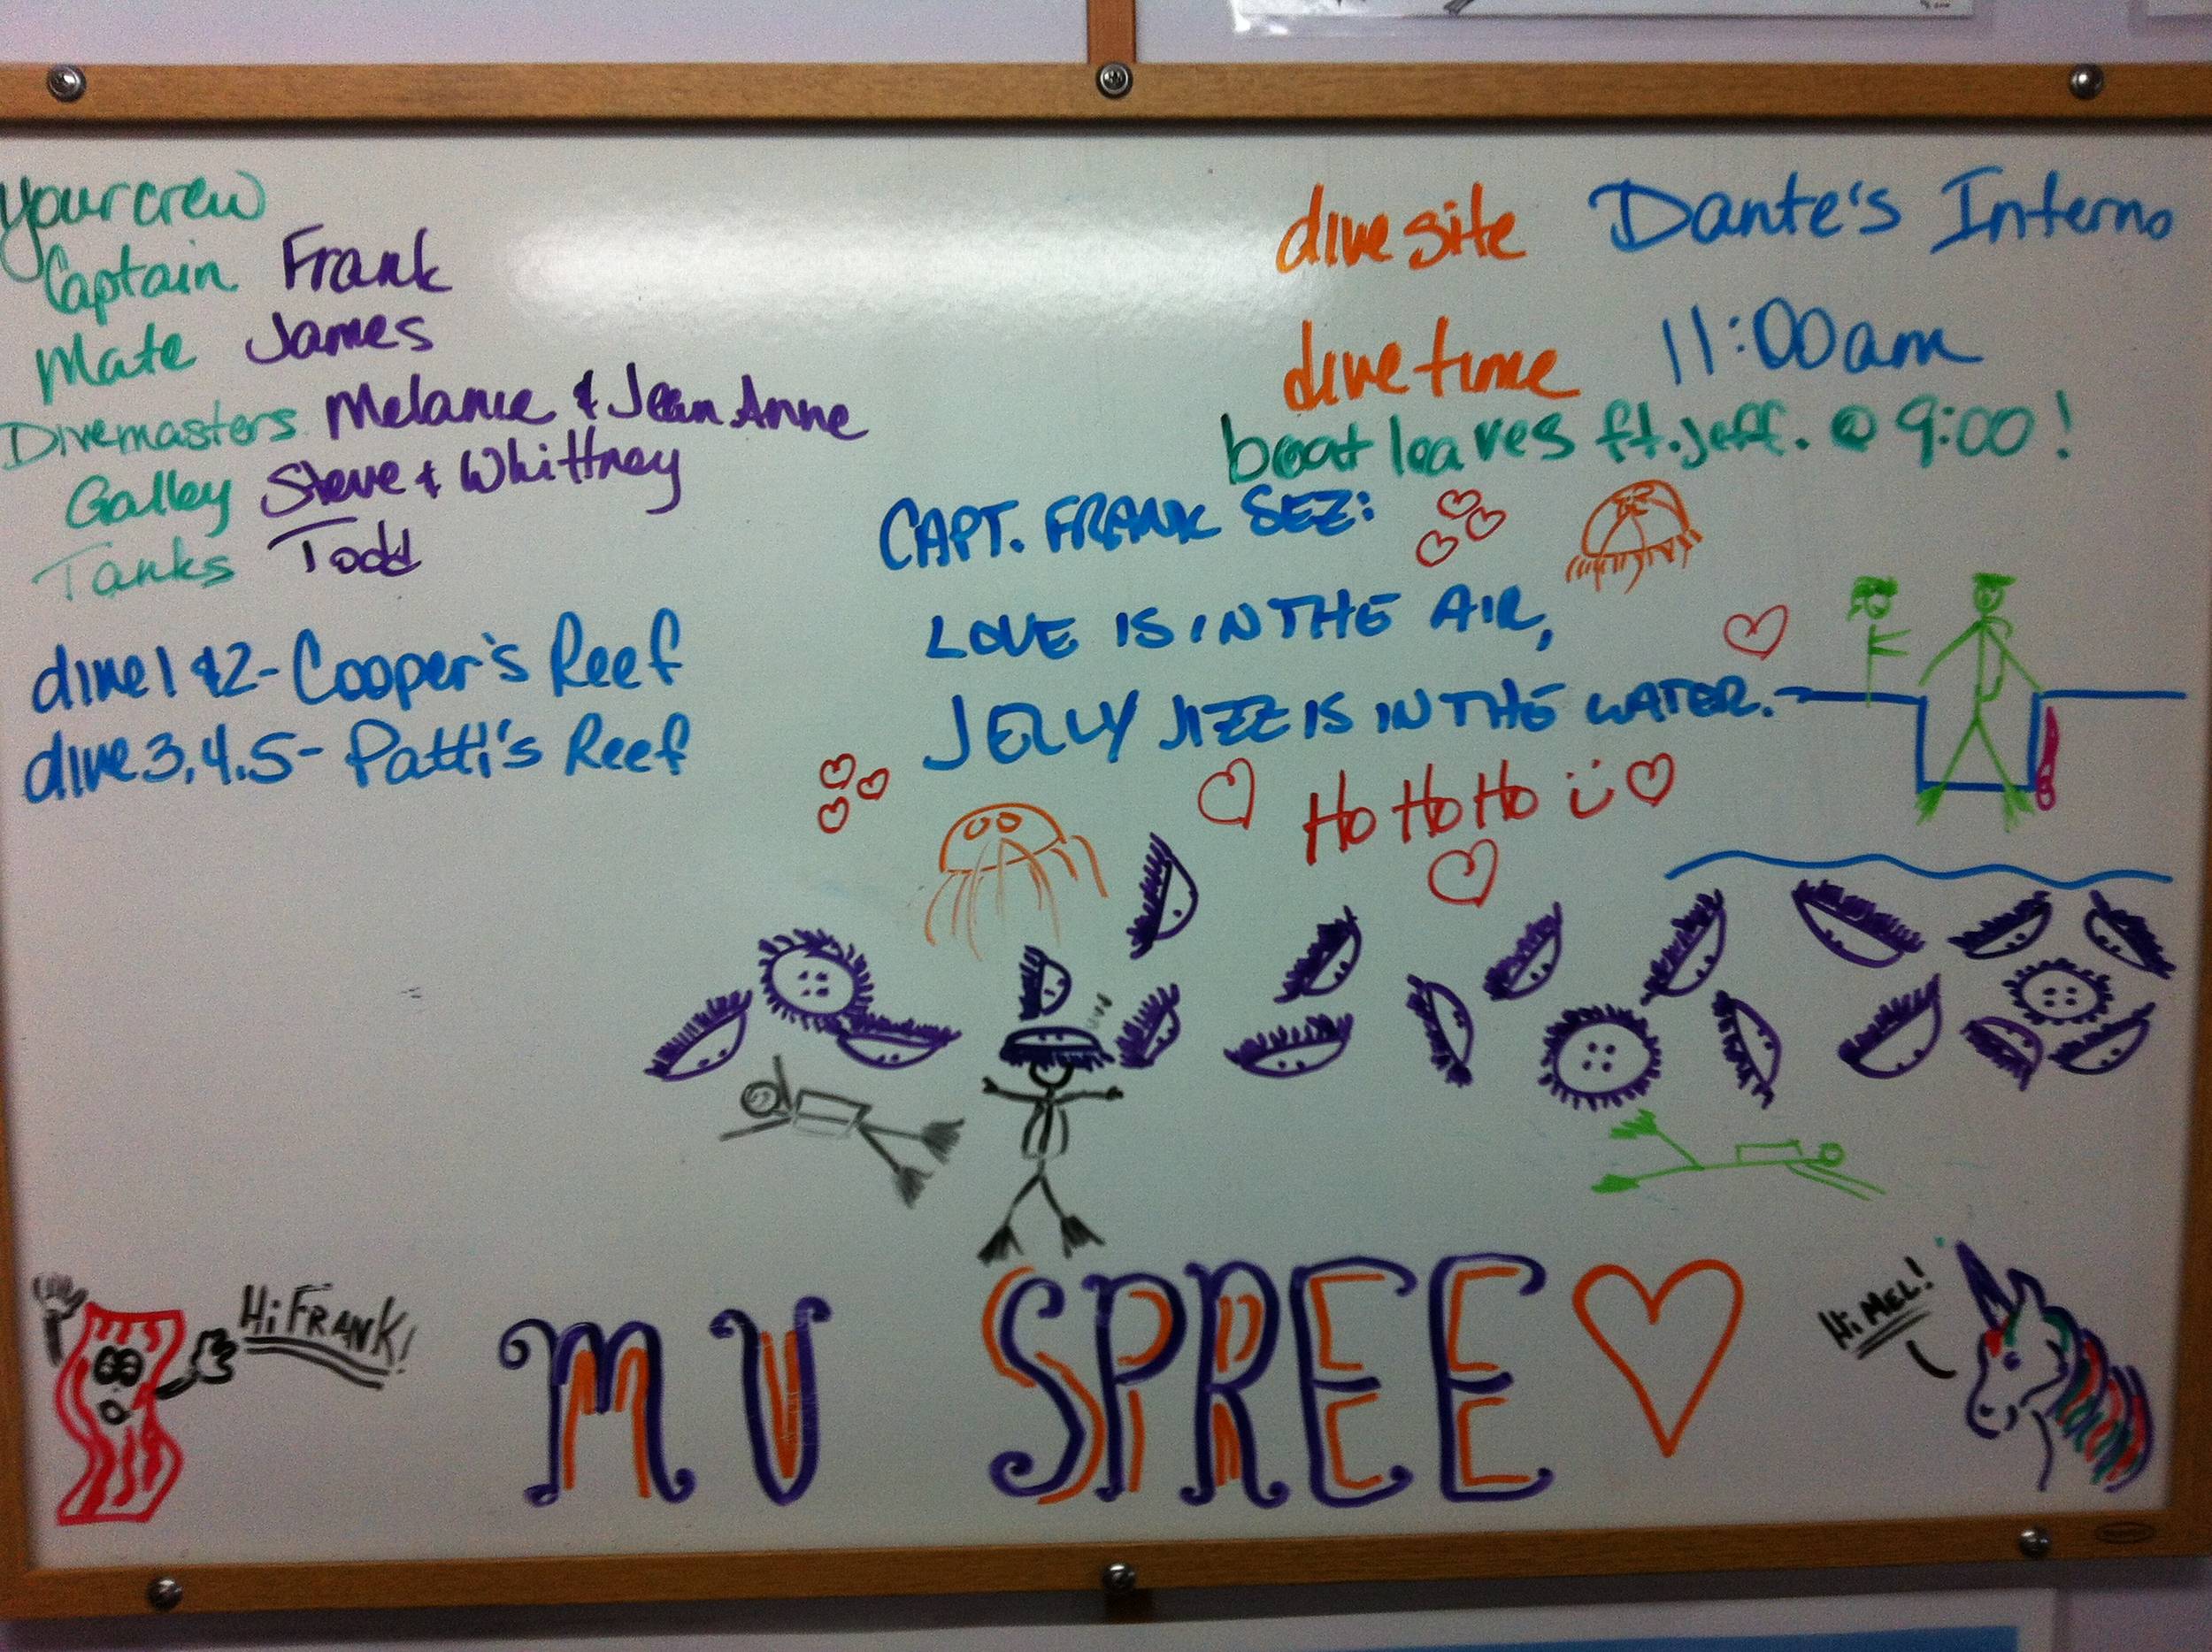 your crew
Captain Frank
Mate James
Divemasters Melanie & Jean Anne
Galley Steve & Whittney
Tanks Todd
dive 1 & 2 - Cooper's Reef
dive 3,4,5 - Patti's Reef
dive site Dante's Inferno
dive time 11:00am
boat leaves ft. jeff. @ 9:00!
CAPT. FRANK SEZ:
LOVE IS IN THE AIR,
JELLY JIZZ IS IN THE WATER.
Ho Ho Ho
Hi FRANK!
MV SPREE
Hi MEL!